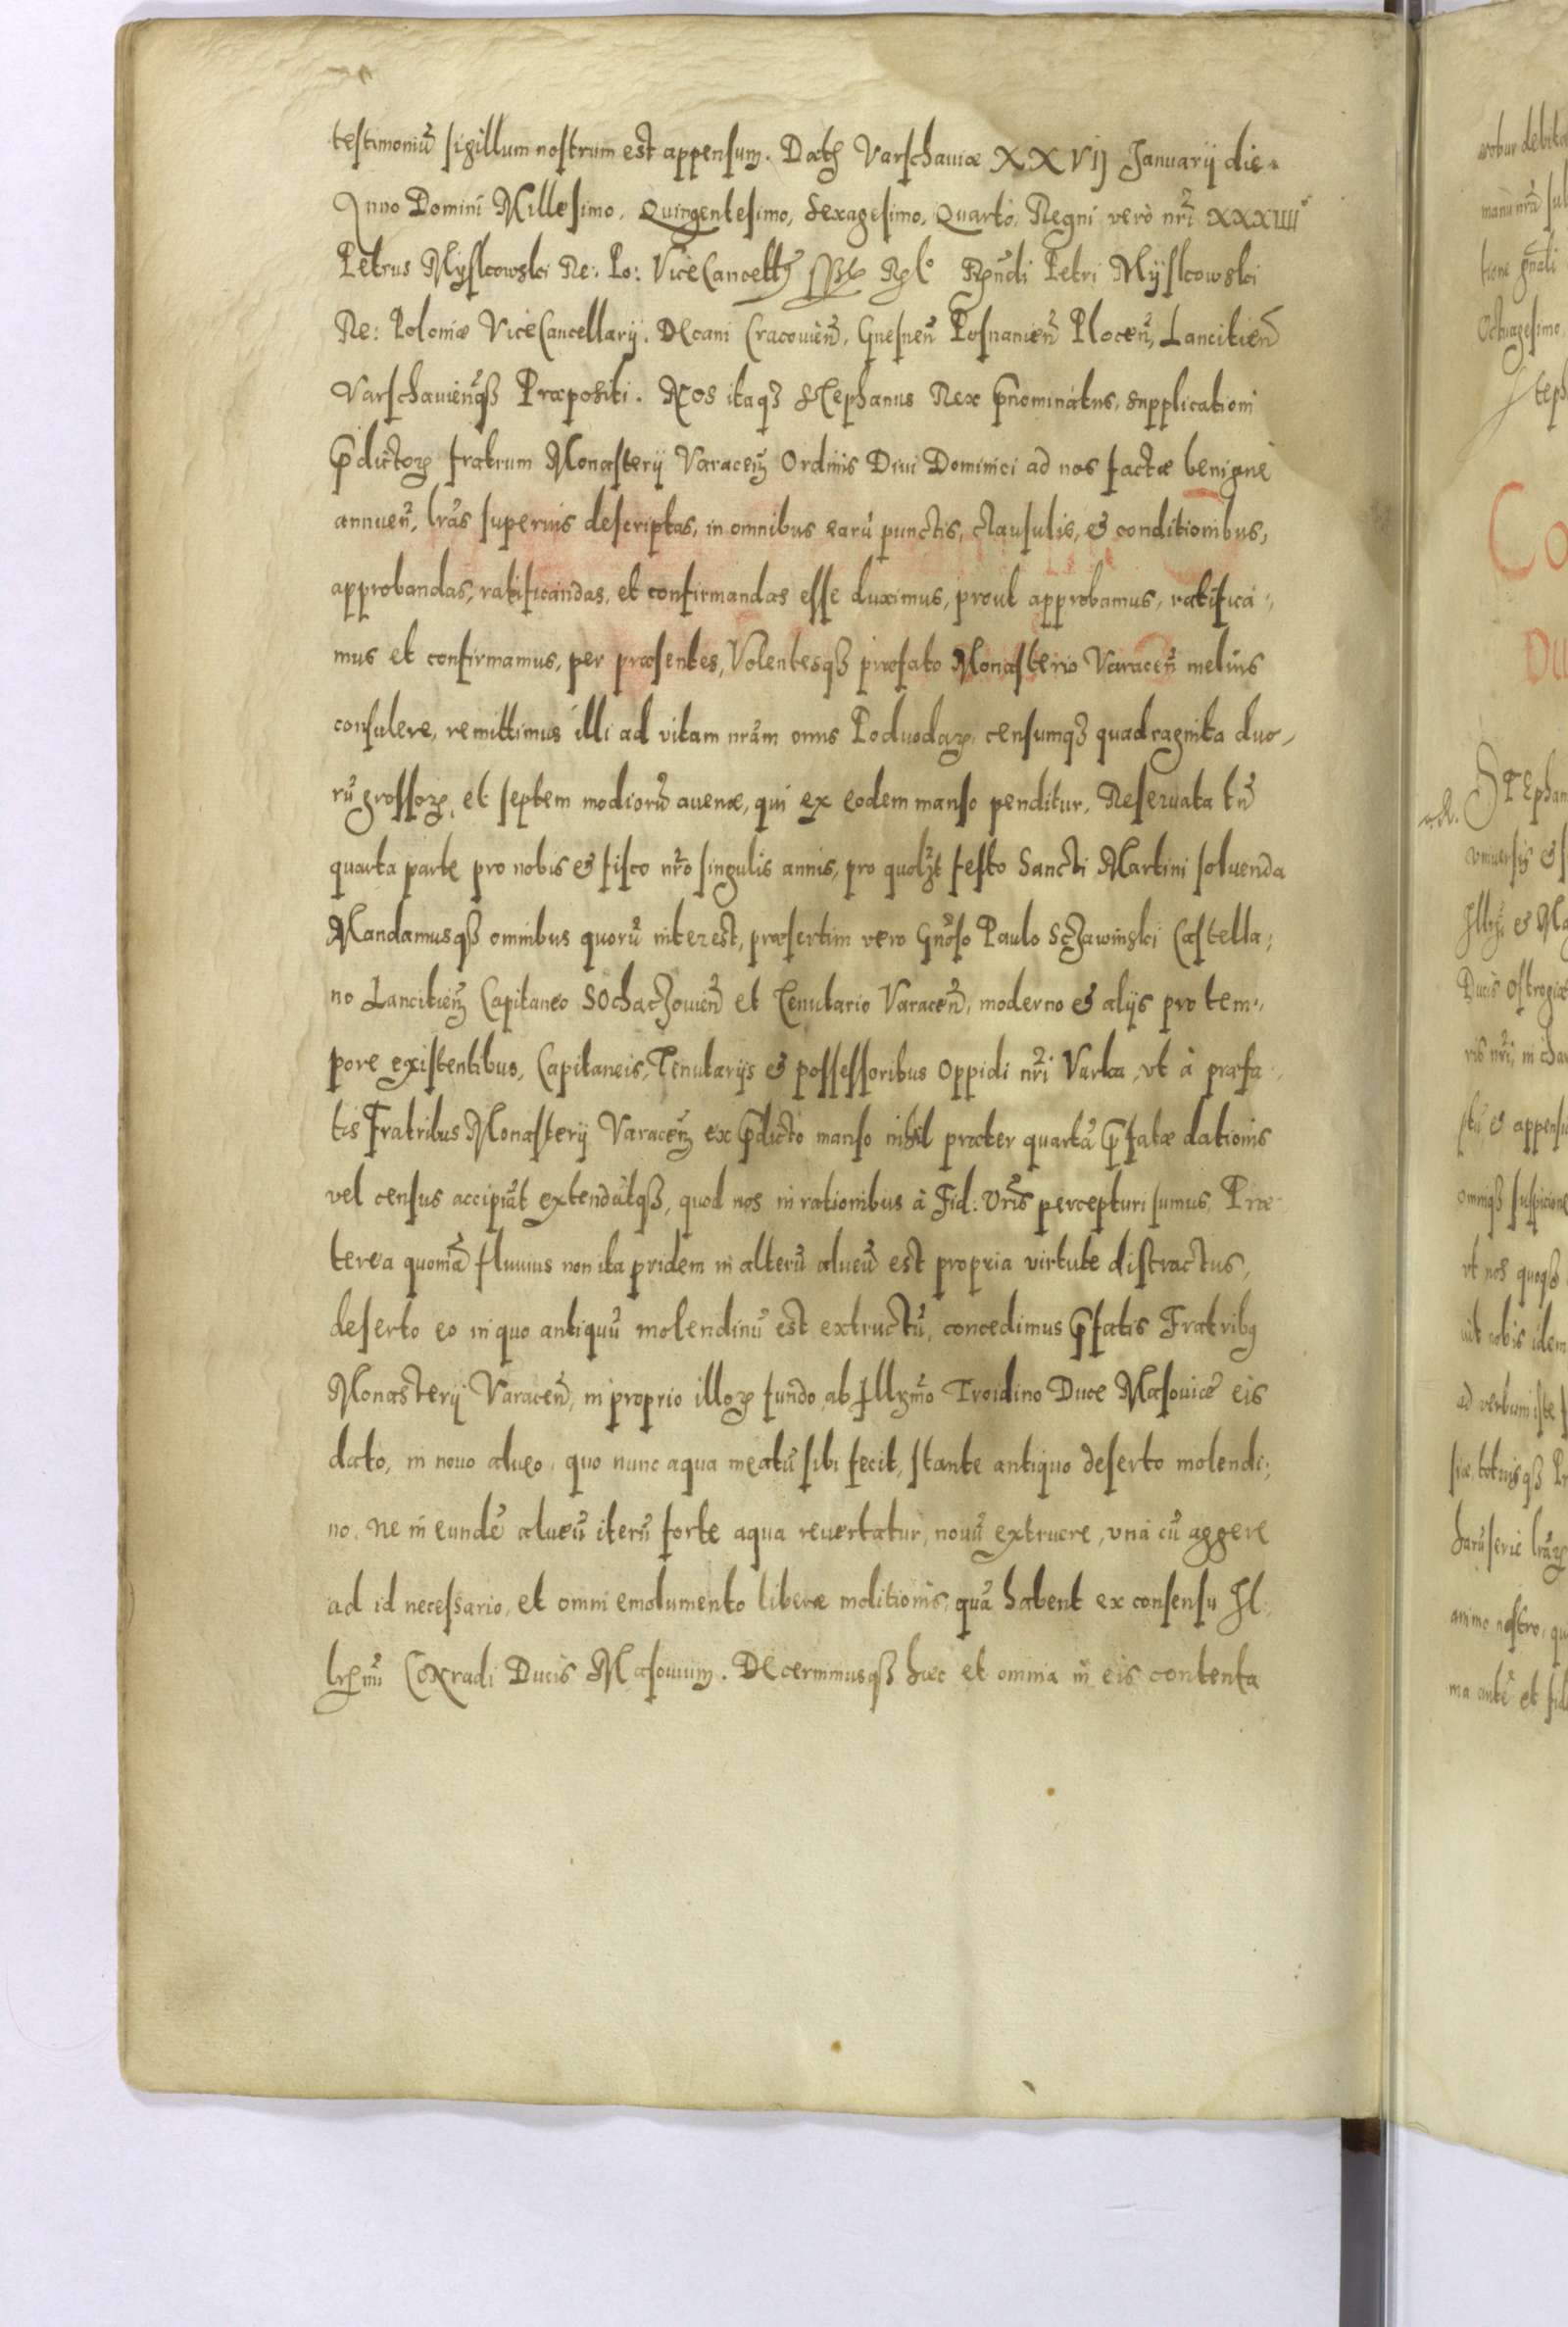 testimoniū sigillum nostrum est appensum. Datȝ Varschaviæ XXVIJ Januarij die.
Anno Domini Millesimo, Quingentesimo, Sexagesimo, Quarto, Regni verò nr̃i XXXIIII
Petrus Myslcowslci Re: Po: ViceCancell Rñdi Petri Myslcowslci
Re: Poloniæ ViceCancellarij, Decani Cracovień, Gnesneń Posnanień Ploceń, Lancitień
Varschavienqß Præpositi. Nos itaqȝ Stephanus Rex p̃nominatus, supplicationi
p̃dictoꝝ fratrum Monasterij Varaceń Ordinis Divi Dominici ad nos factæ benigne
annueñ, lr̃as superius descriptas, in omnibus earū punctis, clausulis, & conditionibus,
approbandas, ratificandas, et confirmandas esse duximus, prout approbamus, ratifica,,
mus et confirmamus, per præsentes, Volentesqß præfato Monasterio Varaceń melius
consulere, remittimus illi ad vitam nrãm onus Poduodaꝝ, censumqȝ quadraginta duo,
rū grossoꝝ, et septem modiorū auenæ, qui ex eodem manso penditur, Reseruata tñ
quarta parte pro nobis & fisco nr̃o singulis annis, pro quolȝt festo Sancti Martini soluenda
Mandamusqß omnibus quorū interest, præsertim vero Gnõso Paulo Sczawinslci Castella;
no Lancitień Capitaneo Sochaczouień et Tenutario Varaceń, moderno & alijs pro tem,,
pore existentibus, Capitaneis, Tenutarijs & possessoribus Oppidi nr̃i Varka, vt à præfa,
tis Fratribus Monasterij Varaceń ex p̃dicto manso nihil præter quartā p̃fatæ dationis
vel census accipiāt extendātqß, quod nos in rationibus à Fid: Vr̃is percepturi sumus, Præ
terea quoniā fluuius non ita pridem in alterū alueū est propria virtute distractus,
deserto eo in quo antiquū molendinū est extructū, concedimus p̃fatis Fratribȝ
Monasterij Varaceń, in proprio illoꝝ fundo, ab Illr̃mo Troidino Duce Masouiæ eis
dato, in nouo alueo, quo nunc aqua meatū sibi fecit, stante antiquo deserto molendi;
no, ne in eundē alueū iterū forte aqua reuertatur, nouū extruere, vnà cū aggere
ad id necessario, et omni emolumento liberæ molitionis, quā habent ex consensu Il:
lr̃mi Conradi Ducis Masouiæ. Decernimusqß hæc et omnia in eis contenta